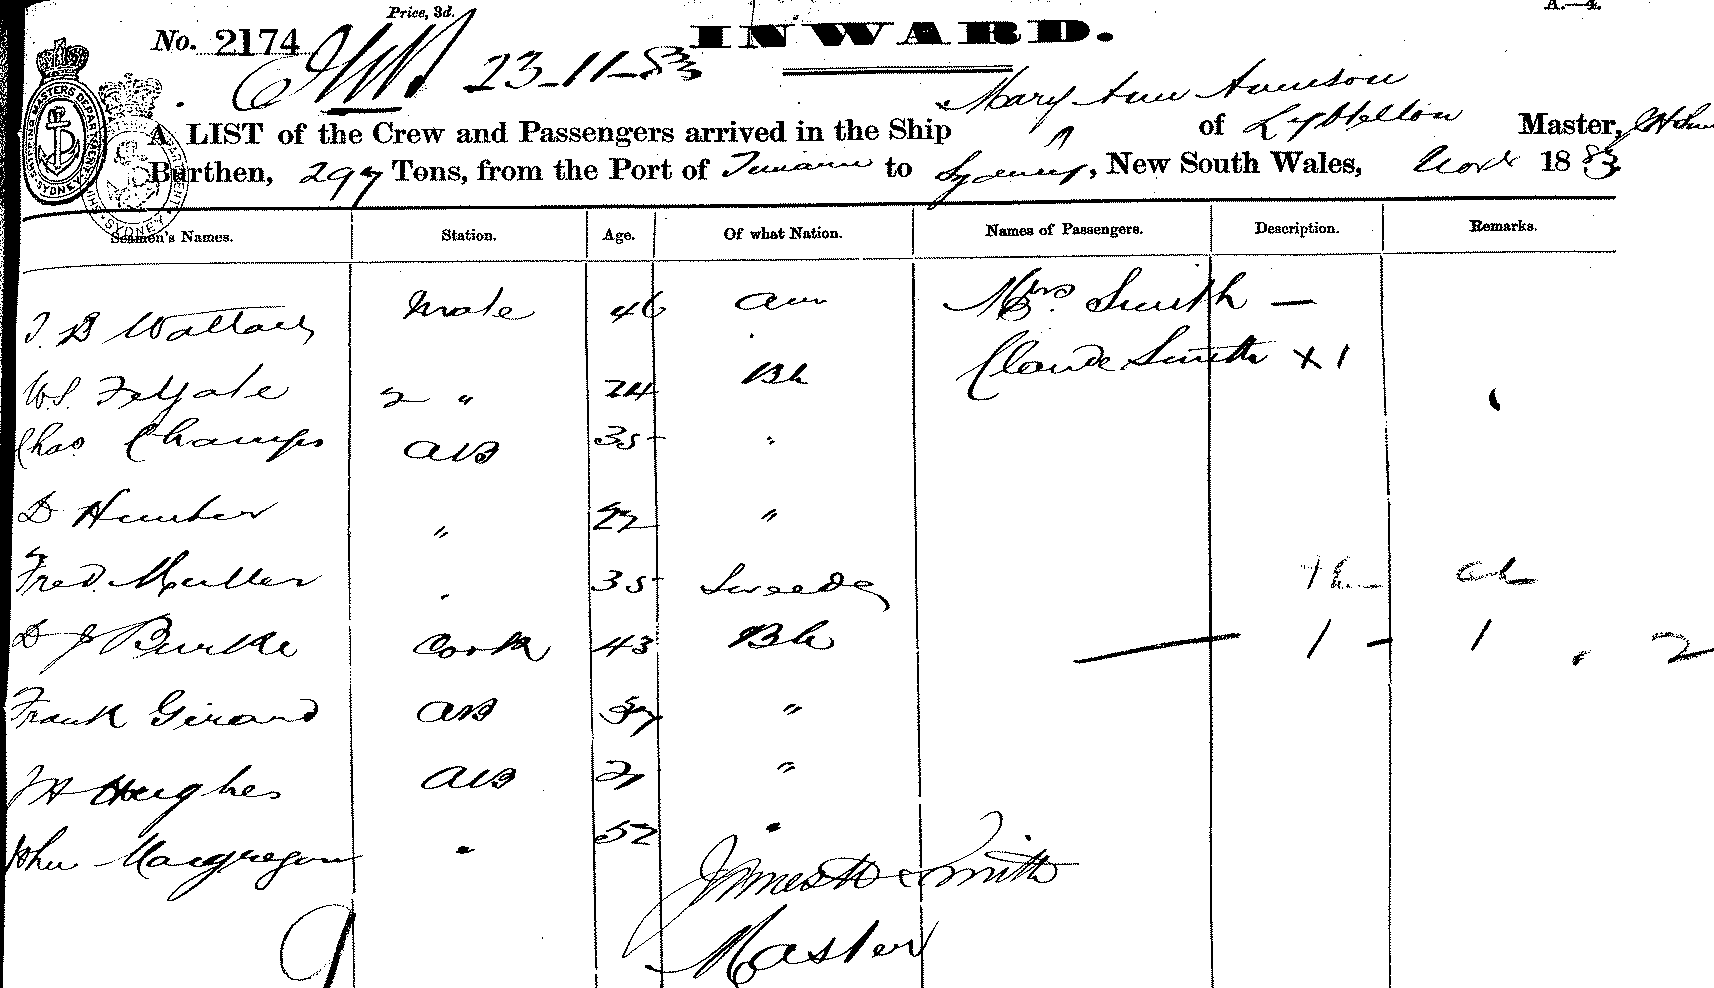 Price, 3d.
A.—4.
No. 2174
INWARD.
23-11-83
Mary Ann Annison
A LIST of the Crew and Passengers arrived in the Ship of Lyttelton Master, J H Sm
Burthen, 297 Tons, from the Port of Timaru to Sydney, New South Wales, Nov 1883
Seamen's Names. Station. Age. Of what Nation. Names of Passengers. Description. Remarks.
Mate 46 Mrs. Smith —
Claude Smith × 1
W.S. 2 " 24 Bh
Chas Champs AB 35 "
D Hunter " 22 "
Fred. Muller 35 Swede
D J Burke Cook 43 Bh — 1 - 1 . 2
Frank Girard AB 37 "
J H Hughes AB "
John Macgregor " 52 "
James H Smith
Master
9